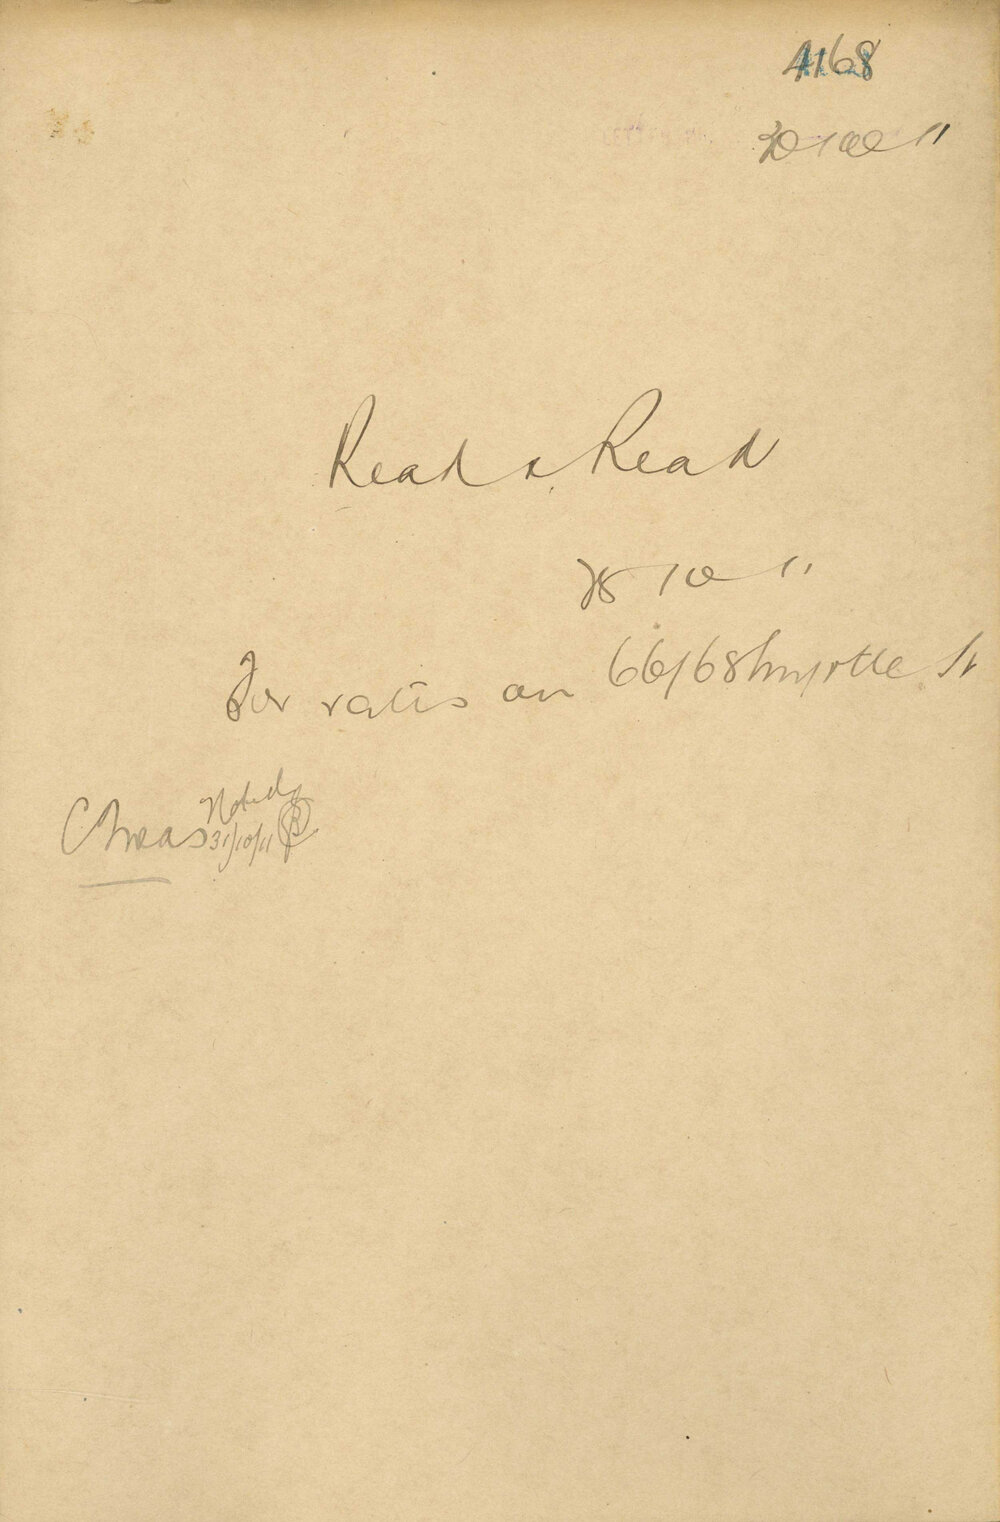 4168
30 10 11
Read & Read
28 10 11
For rates on 66/68 Myrtle St
Noted
31/10/11